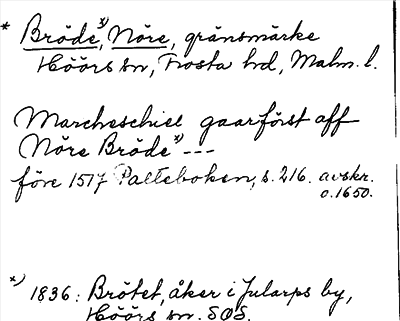 * Bröde *), Nöre, gränsmärke
Höörs sn, Frosta hd, Malm. l.
Marcheschiel gaar först aff
Nöre Bröde *) ---
före 1517 Palteboken, s. 216. avskr.
o. 1650.
*) 1836: Brötet, åker i Jularps by,
Höörs sn. SOS.